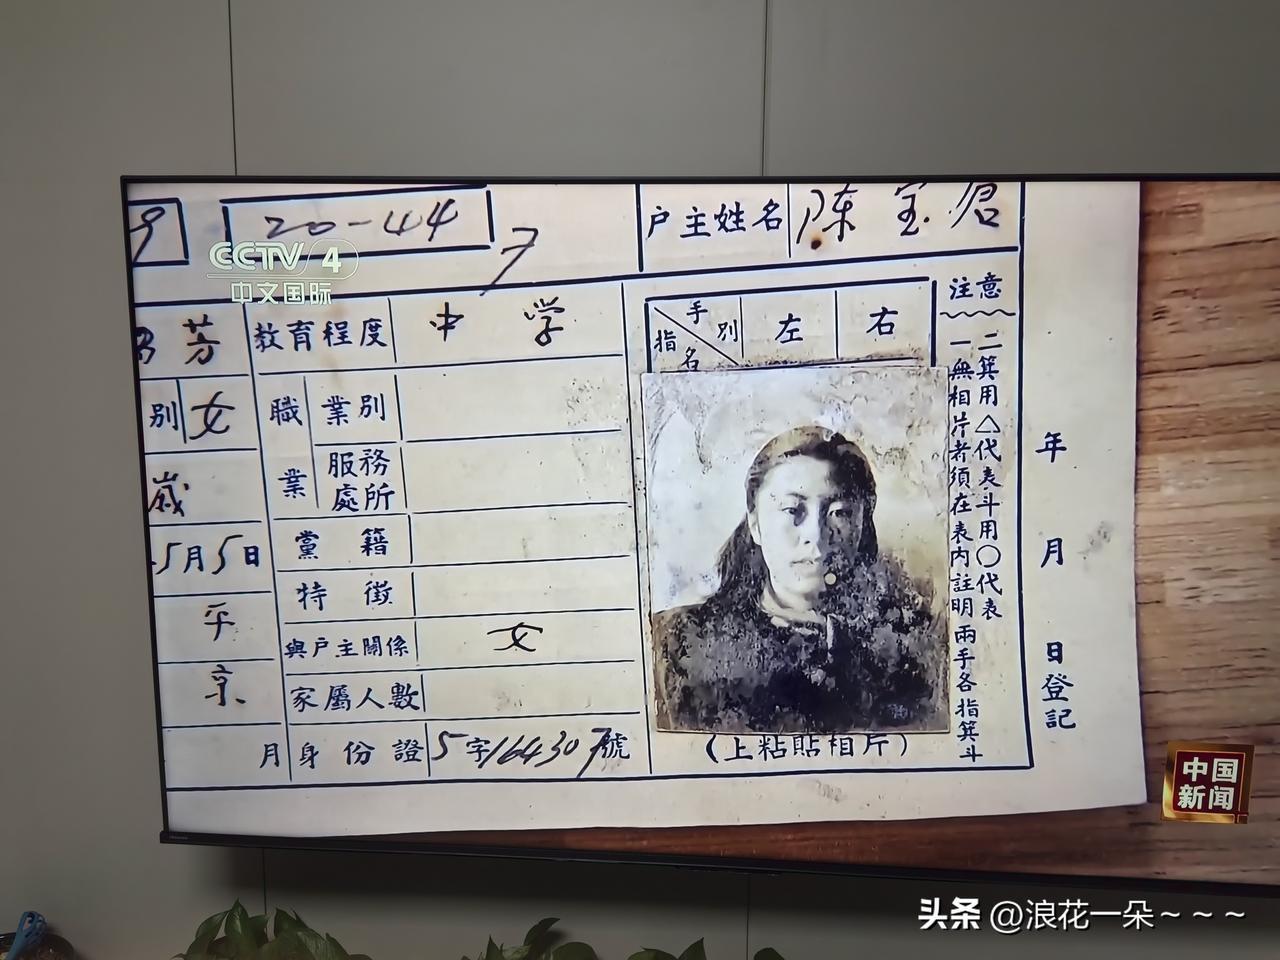 20-44
户主姓名 陈宝倉
CCTV 4
中文国际
芳 教育程度 中学
手別 指名 左 右
注意
一無相片者須在表內註明兩手各指箕斗
二箕用△代表斗用〇代表
別 女 職業 業別
服務處所
歲
黨籍
5月5日
特徵
平京
與戶主關係 女
家屬人數
月 身份證 5字164307號
(上粘貼相片)
年月日登記
中国新闻
头条 @浪花一朵～～～